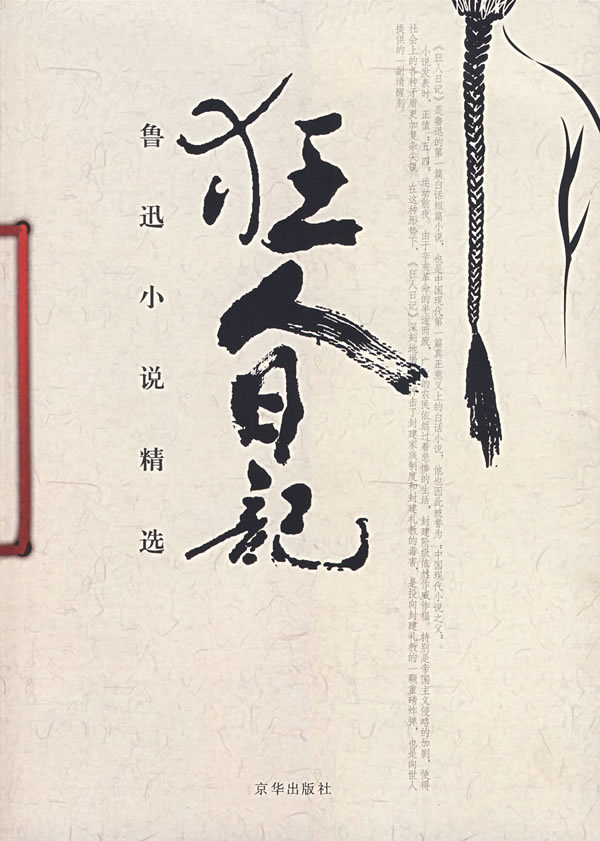 《狂人日记》是鲁迅的第一篇白话短篇小说，也是中国现代第一篇真正意义上的白话小说，他也因此被誉为“中国现代小说之父”。
小说发表时，正值“五四”运动前夜。由于辛亥革命的半途而废，广的农民依然过着悲惨的生活，封建阶级依然作威作福。特别是帝国主义侵略的加剧，使得
社会上的各种矛盾更加复杂尖锐。在这种形势下，《狂人日记》深刻地击了封建家族制度和封建礼教的毒害，是投向封建礼教的一颗重磅炸弹，也是向世人
提供的一副清醒剂。
狂人日記
鲁迅小说精选
京华出版社